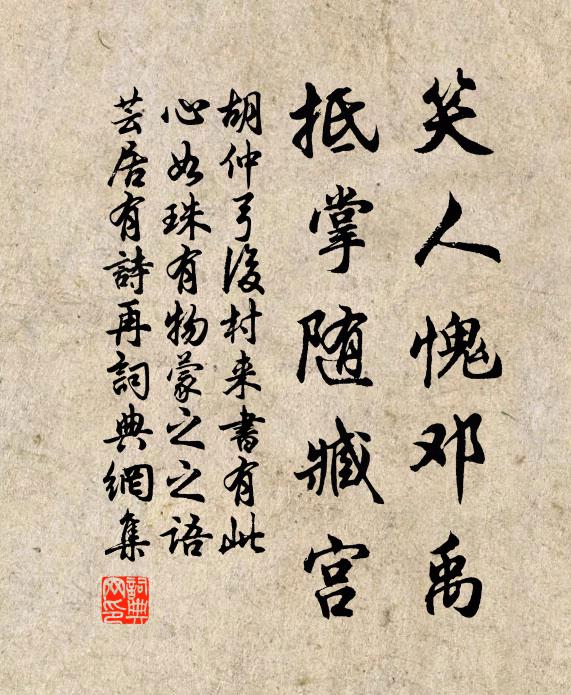 笑人愧邓禹
抵掌随臧宫
胡仲弓後村来書有此
心如珠有物蒙之之語
芸居有詩再詞典網集